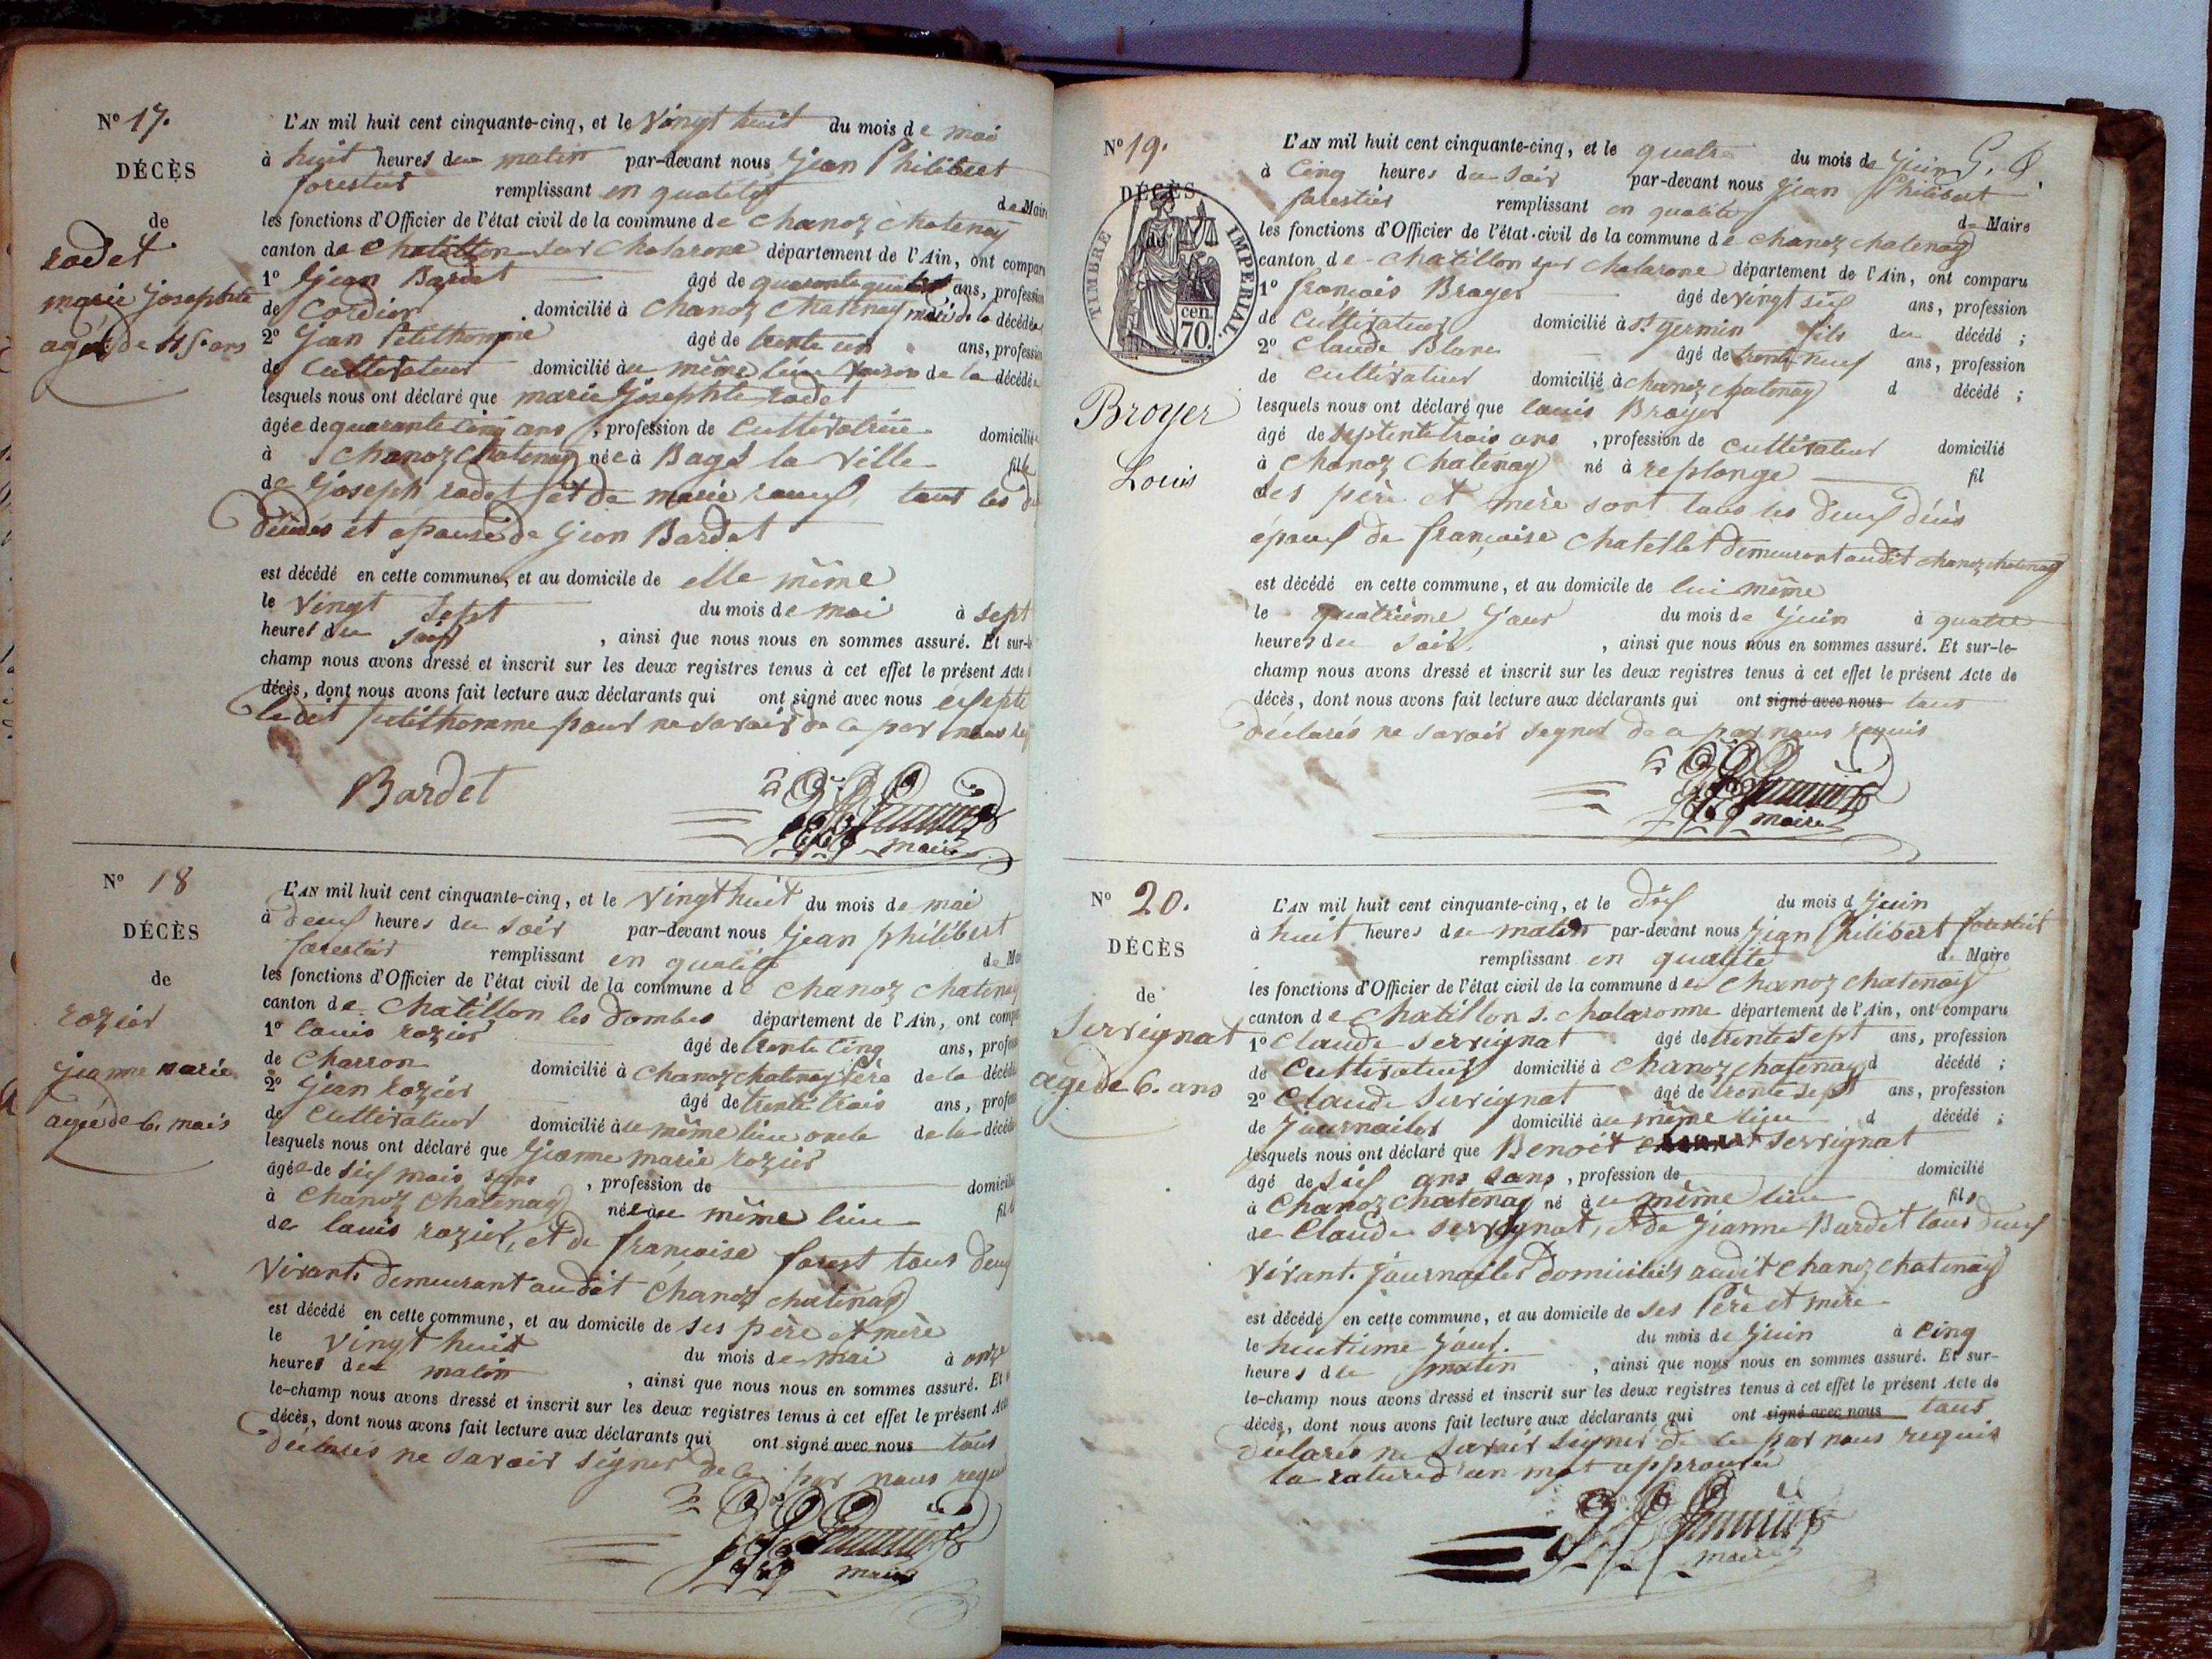 N° 17.
DÉCÈS
de
rodet
marie josephte
agée de 45 ans
L'AN mil huit cent cinquante-cinq, et le vingt huit du mois de mai
à huit heures du matin par-devant nous jean Philibert
forestier remplissant en qualité de Maire
les fonctions d'Officier de l'état civil de la commune de chanoz chatenay
canton de chatillon sur chalarone département de l'Ain, ont comparu
1° jean Bardet âgé de quarante quatre ans, profession
de Cordier domicilié à chanoz chatenay mari de la décédée
2° jean Petithomme âgé de trente un ans, profession
de Cultivateur domicilié au même lieu voisin de la décédée
lesquels nous ont déclaré que marie josephte rodet
âgée de quarante cinq ans, profession de Cultivatrice domiciliée
à chanoz chatenay née à Bagé la ville fille
de joseph rodet et de marie tous les
décédés et épouse de jean Bardet
est décédé en cette commune, et au domicile de elle même
le vingt sept du mois de mai à sept
heures du soir, ainsi que nous nous en sommes assuré. Et sur-le
champ nous avons dressé et inscrit sur les deux registres tenus à cet effet le présent Acte
décès, dont nous avons fait lecture aux déclarants qui ont signé avec nous excepté
le dit petithomme pour ne savoir de ce par nous
Bardet
maire
N° 18
DÉCÈS
de
rozier
jeanne marie
agée de 6. mois
L'AN mil huit cent cinquante-cinq, et le vingt huit du mois de mai
à deux heures du soir par-devant nous jean philibert
forestier remplissant en qualité de
les fonctions d'Officier de l'état civil de la commune de chanoz chatenay
canton de Chatillon les dombes département de l'Ain, ont
1° louis rozier âgé de trente cinq ans,
de Charron domicilié à chanoz chatenay Père de la décédée
2° jean rozier âgé de trente trois ans,
de cultivateur domicilié au même lieu oncle de la décédée
lesquels nous ont déclaré que jeanne marie rozier
âgée de six mois sans, profession de domicilié
à chanoz chatenay née au même lieu fille
de louis rozier, et de françoise forest tous deux
vivant. demeurant audit chanoz chatenay
est décédé en cette commune, et au domicile de ses père et mère
le vingt huit du mois de mai à onze
heures du matin, ainsi que nous nous en sommes assuré. Et
le-champ nous avons dressé et inscrit sur les deux registres tenus à cet effet le présent Acte
décès, dont nous avons fait lecture aux déclarants qui ont signé avec nous tous
déclarés ne savoir signer de ce par nous requis
maire
N° 19.
DÉCÈS
de
TIMBRE IMPERIAL.
cen.
70.
Broyer
Louis
L'AN mil huit cent cinquante-cinq, et le quatre du mois de juin
à Cinq heures du soir par-devant nous jean Philibert
forestier remplissant en qualité de Maire
les fonctions d'Officier de l'état civil de la commune de chanoz chatenay
canton de chatillon sur chalarone département de l'Ain, ont comparu
1° françois Broyer âgé de vingt six ans, profession
de Cultivateur domicilié à St germin fils du décédé ;
2° claude Blanc âgé de trente neuf ans, profession
de cultivateur domicilié à chanoz chatenay d décédé ;
lesquels nous ont déclaré que louis Broyer
âgé de septente trois ans, profession de cultivateur domicilié
à chanoz chatenay né à replonge fil
des père et mère sont tous les deux
époux de françoise chatellet demeurant audit chanoz chatenay
est décédé en cette commune, et au domicile de lui même
le quatrième jour du mois de juin à quatre
heures du soir, ainsi que nous nous en sommes assuré. Et sur-le-
champ nous avons dressé et inscrit sur les deux registres tenus à cet effet le présent Acte de
décès, dont nous avons fait lecture aux déclarants qui ont signé avec nous tous
déclarés ne savoir segner de ce par nous requis
maire
N° 20.
DÉCÈS
de
Servignat
age de 6. ans
L'AN mil huit cent cinquante-cinq, et le dix du mois d juin
à huit heures du matin par-devant nous jean Philibert forestier
remplissant en qualité de Maire
les fonctions d'Officier de l'état civil de la commune de chanoz chatenay
canton de Chatillon s. chalaronne département de l'Ain, ont comparu
1° claude servignat âgé de trente sept ans, profession
de cultivateur domicilié à chanoz chatenay d décédé ;
2° claude servignat âgé de trente sept ans, profession
de journalier domicilié au même lieu d décédé ;
lesquels nous ont déclaré que Benoit servignat
âgé de six ans sans, profession de domicilié
à chanoz chatenay né au même lieu fils
de claude servignat, et de jeanne Bardet tous deux
vivant. journalier domiciliés audit chanoz chatenay
est décédé en cette commune, et au domicile de ses Père et mère
le huitième jour. du mois de juin à cinq
heures du matin, ainsi que nous nous en sommes assuré. Et sur-
le-champ nous avons dressé et inscrit sur les deux registres tenus à cet effet le présent Acte de
décès, dont nous avons fait lecture aux déclarants qui ont signé avec nous tous
déclarés ne savoir signer de ce par nous requis
la rature d'un mot approuvée
maire